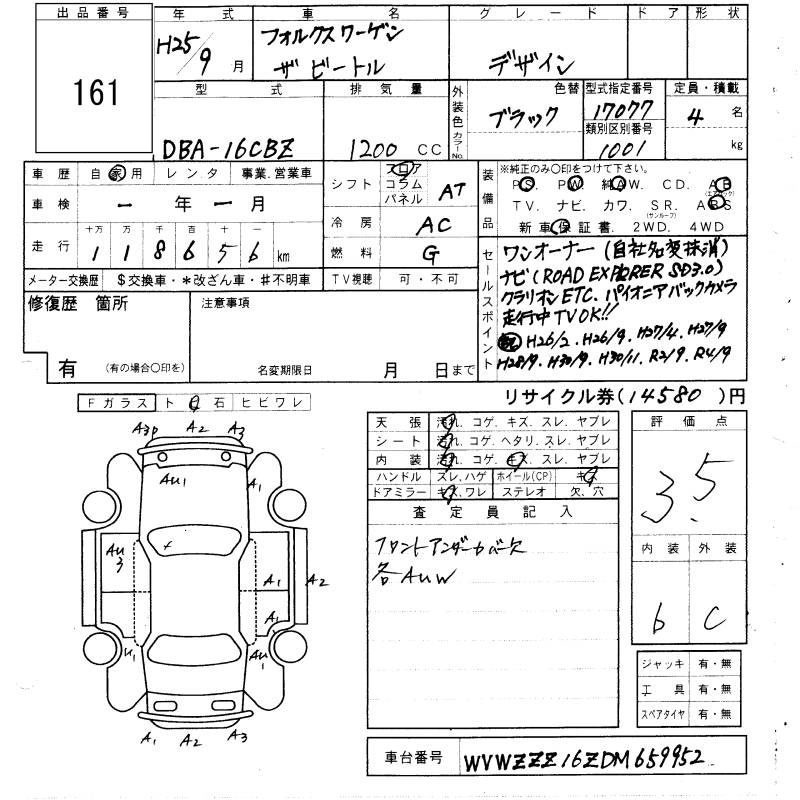 出品番号
161
年式
H25/9月
車名
フォルクスワーゲン
ザ ビートル
グレード
デザイン
ドア
形状
型式
DBA-16CBZ
排気量
1200 CC
外装色
ブラック
色替
カラーNo.
型式指定番号
17077
類別区別番号
1001
定員・積載
4 名
kg
車歴 自家用 レンタ 事業.営業車
車検 一 年 一 月
走行 十万 万 千 百 十 一
1 1 8 6 5 6 km
メーター交換歴 $交換車・*改ざん車・#不明車
シフト フロア コラム パネル AT
冷房 AC
燃料 G
TV視聴 可・不可
装備品
※純正のみ〇印をつけて下さい。
PS. PW. 純AW. CD. AB (エアバック)
TV. ナビ. カワ. SR. (サンルーフ) ABS
新車保証書. 2WD. 4WD
セールスポイント
ワンオーナー (自社名変抹消)
ナビ(ROAD EXPLORER SD3.0)
クラリオンETC. パイオニアバックカメラ
走行中TVOK!!
記 H26/2. H26/9. H27/4. H27/9
H28/9. H30/9. H30/11. R2/9. R4/9
修復歴 箇所
有 (有の場合〇印を)
注意事項
名変期限日 月 日まで
リサイクル券(14580)円
Fガラス ト 石 ヒビワレ
A3P A2 A3
AU1 A1
AU3
A1 A2
A1
U1 AU1
A1 A2 A3
天張 汚れ. コゲ. キズ. スレ. ヤブレ
シート 汚れ. コゲ. ヘタリ. スレ. ヤブレ
内装 汚れ. コゲ. キズ. スレ. ヤブレ
ハンドル スレ.ハゲ ホイール(CP) キズ
ドアミラー キズ.ワレ ステレオ 欠.穴
査定員記入
フロントアンダーカバー欠
各AUW
評価点
3.5
内装 外装
b C
ジャッキ 有・無
工具 有・無
スペアタイヤ 有・無
車台番号 WVWZZZ16ZDM659952